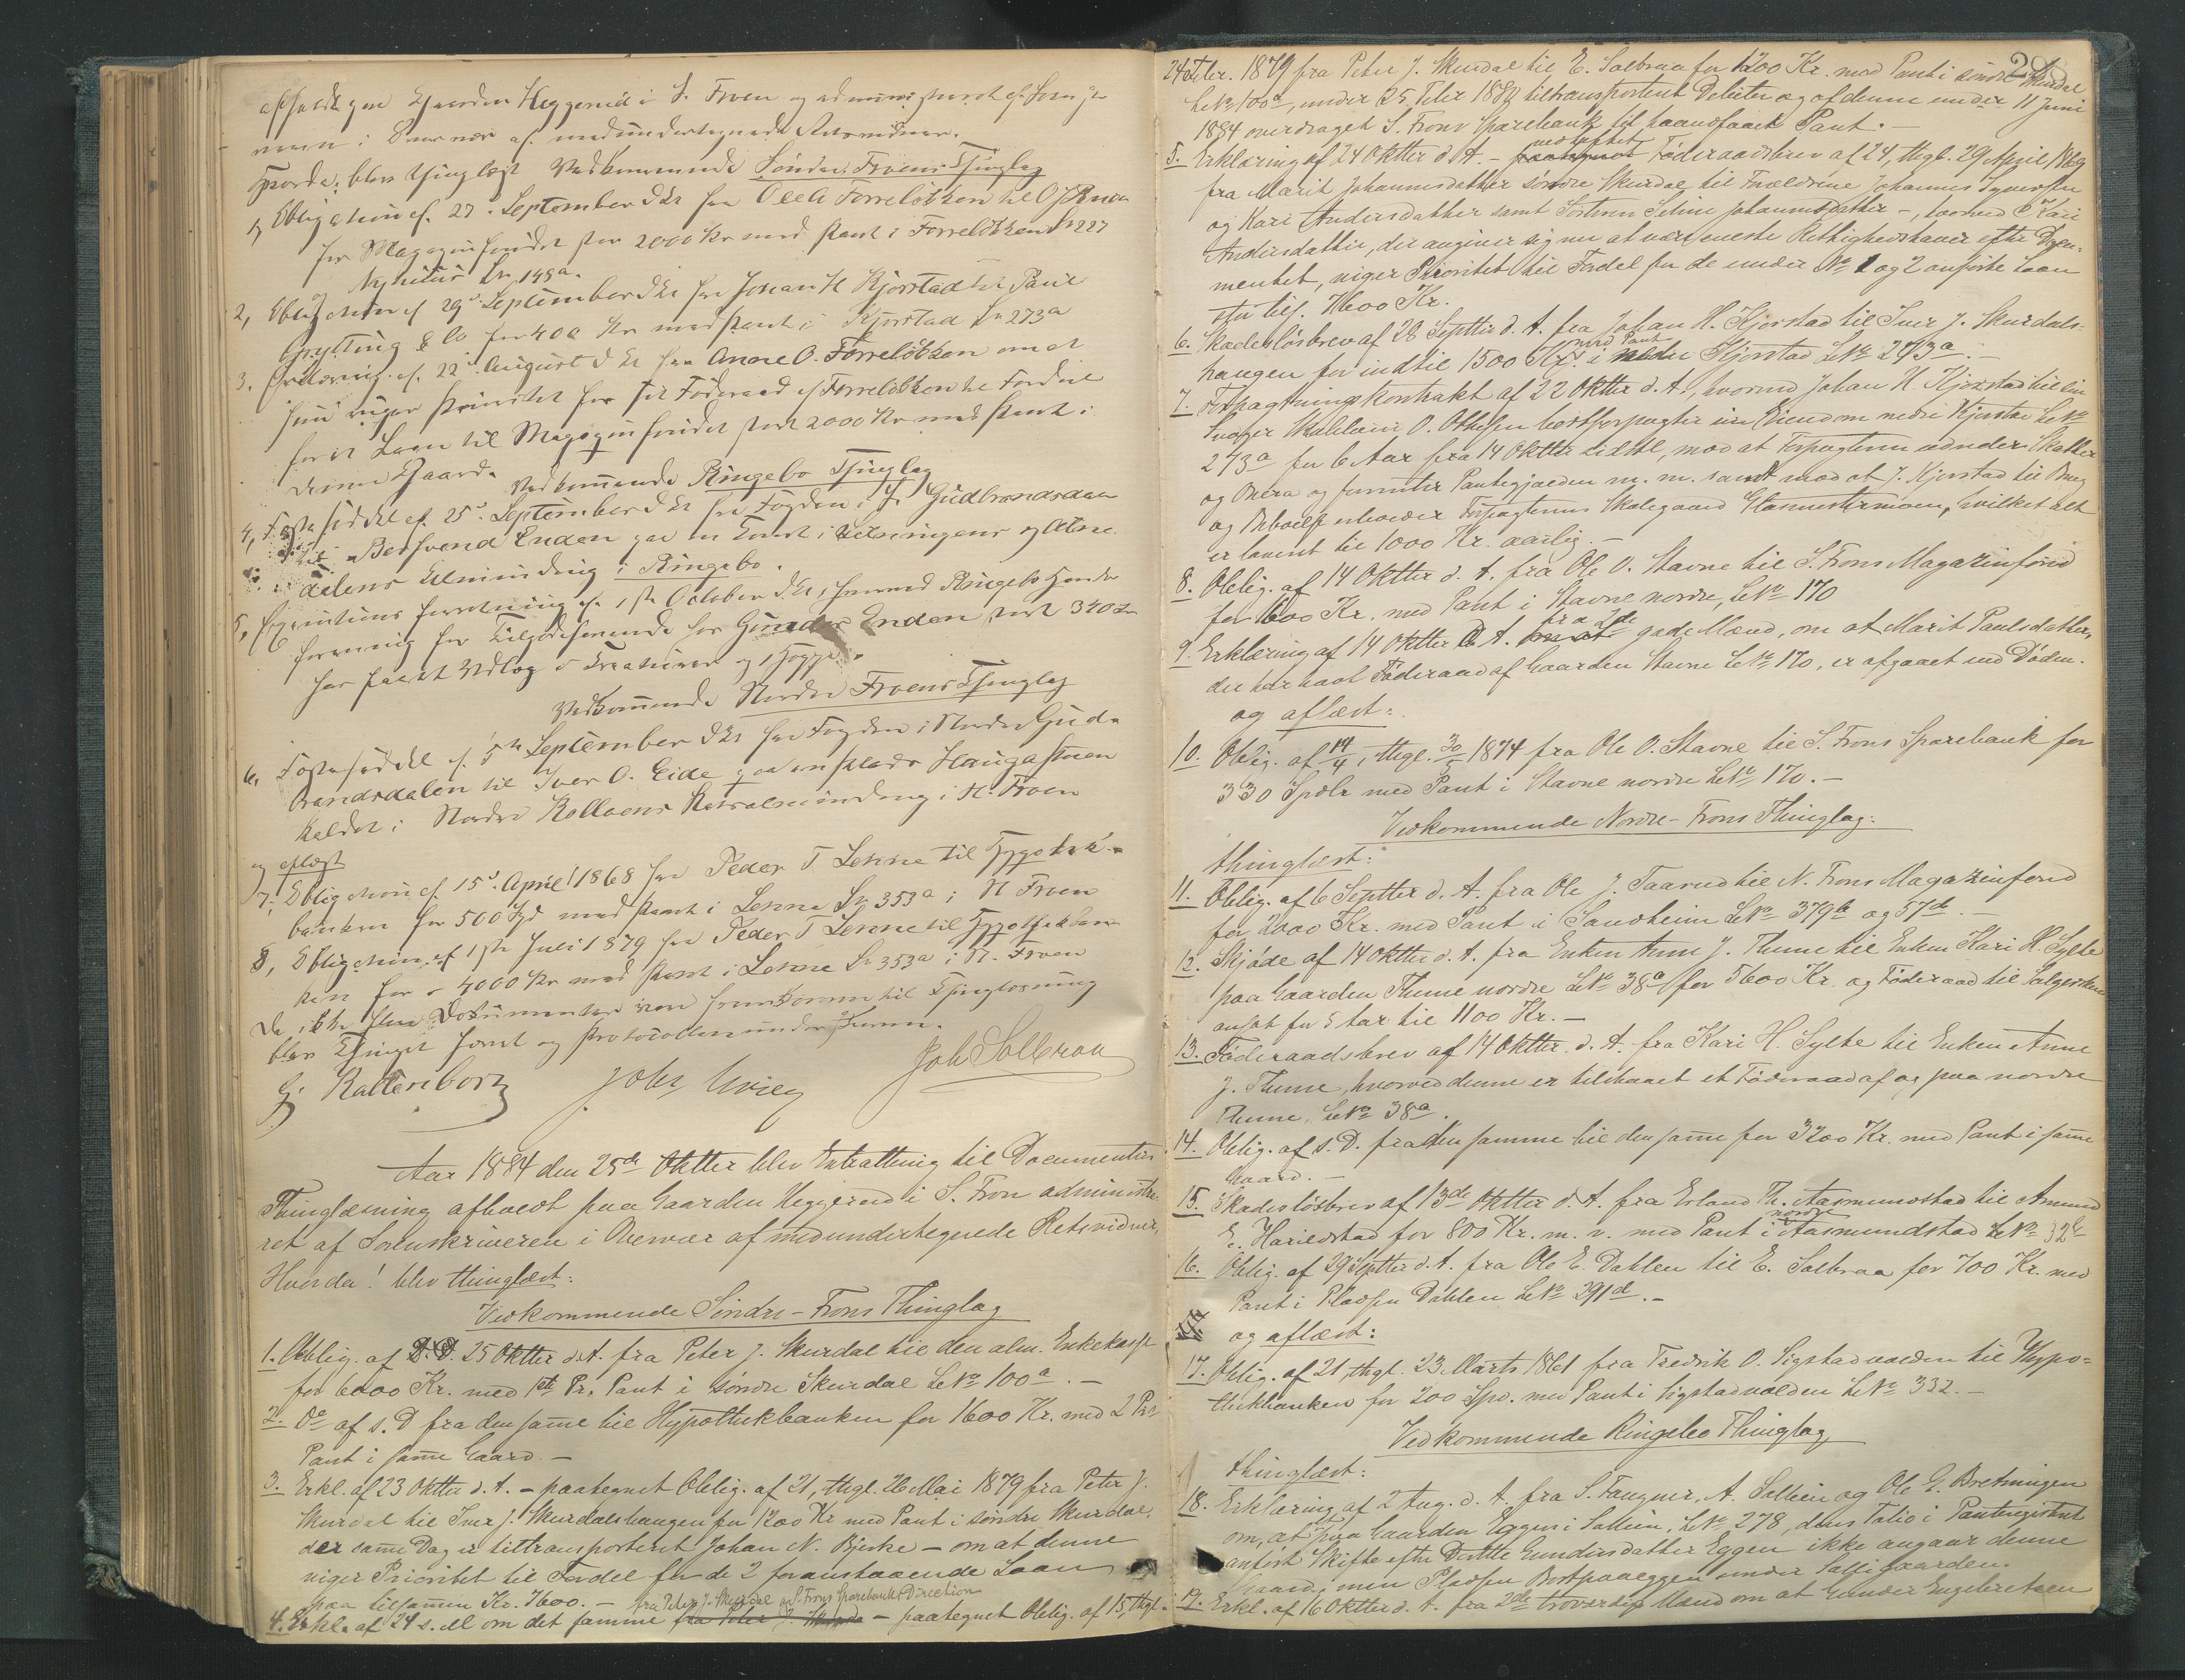 afholdt paa Gaarden Heggerud i S. Froen og administreret af Soren=
i Overvær af medundertegnede Retsvidner.
Hvorda blev thinglæst Vedkommende Søndre Froens Thinglag
1, Obligation af 27. September d. Aar fra Ole Forreløkken til
for Magazinfondet stor 2000 Kr med Pant i Forreløkken 227
og Nyhuus Ln 148a.
2, Obligation af 29. September d. A. fra Johan H Kjorstad til Paul
Grytting & Co for 400 Kr med Pant i Kjorstad Ln 273a
3. Erklæring af 22. August d. A. fra Anne O. Forreløkken om at
hun viger Prioritet for sit Føderaad af Forreløkken til Fordeel
for et Laan til Magazinfondet stort 2000 Kr med Pant i
denne Gaard.
Vedkommende Ringebo Thinglag
4, Fæstesæddel af 25. September d. A. fra Fogden i Gudbrandsdalen
til Berhvend Enden paa en
dalens Alminding i Ringebo.
5, Executions Forretning af 1ste October d. A., hvorved Ringebo Handels
forening for Tilgodehavende hos Gunder Enden stort 340 Kr
har faaet Udlæg i Creaturer og 1 Hoppe.
Vedkommende Nordre Froens Thinglag
6, Fæstesæddel af 5te September d. A. fra Fogden i Nordre Gud=
brandsdalen til Iver O. Eide paa en Plads Haugastuen
kaldet i Nordre Kollaens Statsalminding i N. Froen
og aflæst
7, Obligation af 15. April 1868 fra Peder T Lenne til Hypothek=
banken for 500 Spd med Pant i Lenne Ln 353a i N Froen
8, Obligation af 1ste Juli 1879 fra Peder T Lenne til Hypothekban=
ken for 4000 Kr med Pant i Lenne Ln 353a i N. Froen
Da ikke flere Dokumenter vare fremkomne til Thinglæsning
blev Thinget hævet og Protocollen underskreven.
G Kaltenborn Johs Joh Solbraa
Aar 1884 den 25de Oktber blev Extratting til Documenters
Thinglæsning afholdt paa Gaarden Heggerud i S. Fron administre=
ret af Sorenskriveren i Overvær af medundertegnede Retsvidner,
Hvorda! blev thinglæst:
Vedkommende Søndre-Frons Thinglag
1. Oblig. af D. D. 25 Oktber d. A. fra Peter J. Skurdal til den alm. Enkekasse
for 6000 Kr. med 1ste Pr. Pant i søndre Skurdal LNo 100a. —
2. Do af s. D fra den samme til Hypothekbanken for 1600 Kr. med 2 Pr.
Pant i samme Gaard. —
3. Erkl. af 23 Oktber d. A. — paategnet Oblig. af 21, thgl. 26 Mai 1879 fra Peter J.
Skurdal til Iver J. Skurdalshaugen for 1200 Kr med Pant i søndre Skurdal,
der samme Dag er tiltransporteret Johan N. Bjerke — om at denne
viger Prioritet til Fordel for de 2 foranstaaende Laan
paa tilsammen Kr. 7600. — fra Peter J. Skurdal og S. Frons Sparebanks Direction
4. Erkl. af 24 s. M om det samme fra Peter J. Skurdal — paategnet Oblig. af 15, thgl.
24 Febr. 1879 fra Peter J. Skurdal til E. Solbraa for 1200 Kr. med Pant i søndre Skurdal
LNo 100a, under 25 Febr 1880 tiltransporteret Debiter og af denne under 11 Juni
1884 overdraget S. Frons Sparebank til haandfaaet Pant. —
5. Erklæring af 24 Oktber d. A. — vedheftet Føderaadsbrev af 24, thgl. 29 April 1869
fra Marit Johannesdatter søndre Skurdal til Forældrene Johannes Syversen
og Kari Andersdatter samt Søsteren Seline Johannesdatter —, hvorved Kari
Andersdatter, der angiver sig nu at være eneste Rettighedshaver efter Docu-
mentet, viger Prioritet til Fordel for de under No 1 og 2 anførte Laan
stor tils. 7600 Kr.
6. Skadesløsbrev af 28 Septber d. A. fra Johan H. Kjorstad til Iver J. Skurdals=
haugen for indtil 1500 Kr. med Pant i nedre Kjorstad LNo 273a. —
7. Forpagtningskontrakt af 22 Oktber d. A., hvorved Johan H. Kjorstad til sin
Svoger Maleren O. Othesen bortforpagter sin Eiendom nedre Kjorstad LNo
273a for 6 Aar fra 14 Oktber sidstl., mod at Forpagteren udreder Skatter
og Onera og forrenter Pantegjælden m. m. samt mod at J. Kjorstad til Brug
og Beboelse erholder Forpagterens Skalegaard Glasmestermoen, hvilket alt
er taxeret til 1000 Kr. aarlig. —
8. Oblig. af 14 Oktber d. A. fra Ole O. Stavne til S. Frons Magazinfond
for 1600 Kr. med Pant i Stavne nordre, LNo 170
9. Erklæring af 14 Oktber d. A. fra 2de gode Mænd, om at Marit Paulsdatter,
der har havt Føderaad af Gaarden Stavne LNo 170, er afgaaet ved Døden.
og aflæst:
10. Oblig. af 14/4, thgl. 30/5 1874 fra Ole O. Stavne til S. Frons Sparebank for
330 Spdlr med Pant i Stavne nordre LNo 170. —
Vedkommende Nordre-Frons Thinglag:
thinglæst:
11. Oblig. af 6 Septber d. A. fra Ole J. Taarud til N. Frons Magazinfond
for 2000 Kr. med Pant i Sandheim LNo 379b og 57d. —
12. Skjøde af 14 Oktber d. A. fra Enken Anne J. Thune til Enken Kari H. Sylte
paa Gaarden Thune nordre LNo 38a for 5600 Kr. og Føderaad til Sælgersken
ansat for 5 Aar til 1100 Kr. —
13. Føderaadsbrev af 14 Oktber. d. A. fra Kari H. Sylte til Enken Anne
J. Thune, hvorved denne er tilstaaet et Føderaad af og paa nordre
Thune, LNo 38a.
14. Oblig. af s. D. fra den samme til den samme for 3200 Kr. med Pant i samme
Gaard. —
15. Skadesløsbrev af 13de Oktber d. A. fra Erland Th. Aasmundstad til Amund
E. Harildstad for 800 Kr. m. v. med Pant i nordre Aasmundstad LNo 32b
16. Oblig. af 29 Septber d. A. fra Ole E. Dahlen til E. Solbraa for 700 Kr. med
Pant i Pladsen Dahlen LNo 291d. —
og aflæst:
17. Oblig. af 21, thgl. 23 Marts 1861 fra Fredrik O. Sigstadvolden til Hypo=
thekbanken for 200 Spd. med Pant i Sigstadvolden LNo 332. —
Vedkommende Ringebo Thinglag
thinglæst:
18. Erklæring af 2 Aug. d. A. fra S. Fougner, A. Solbein og Ole G. Bretningen
om, at det paa Gaarden Eggen i Sollien, LNo 278, dens Folio i Panteregistret
anførte Skifte efter Dorthe Gundersdatter Eggen ikke angaar denne
Gaard, men Pladsen Bortpaaeggen under Gaarden.
19. Erkl. af 16 Oktber d. A. fra 2de troværdige Mænd om at Gunder Engebretsen